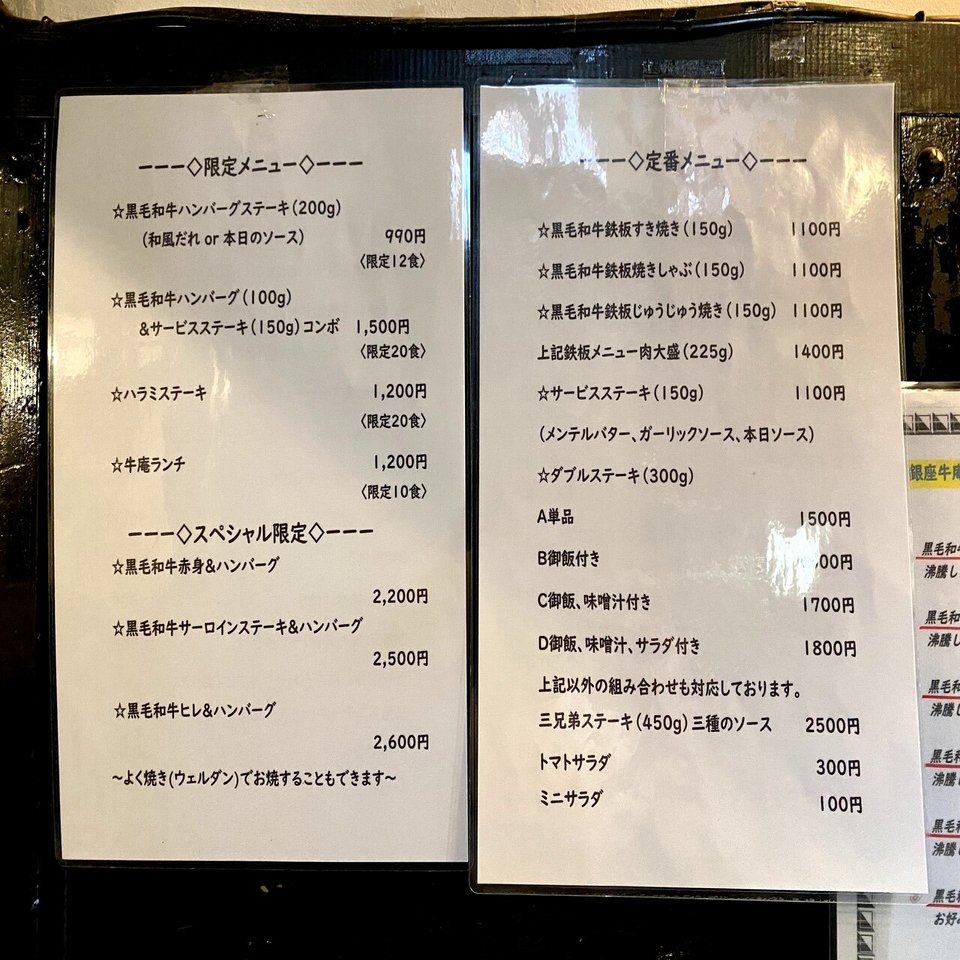 ーーー◇限定メニュー◇ーーー
☆黒毛和牛ハンバーグステーキ(200g)
(和風だれ or 本日のソース) 990円
〈限定12食〉
☆黒毛和牛ハンバーグ(100g)
&サービスステーキ(150g)コンボ 1,500円
〈限定20食〉
☆ハラミステーキ 1,200円
〈限定20食〉
☆牛庵ランチ 1,200円
〈限定10食〉
ーーー◇スペシャル限定◇ーーー
☆黒毛和牛赤身&ハンバーグ
2,200円
☆黒毛和牛サーロインステーキ&ハンバーグ
2,500円
☆黒毛和牛ヒレ&ハンバーグ
2,600円
~よく焼き(ウェルダン)でお焼することもできます~
ーーー◇定番メニュー◇ーーー
☆黒毛和牛鉄板すき焼き(150g) 1100円
☆黒毛和牛鉄板焼きしゃぶ(150g) 1100円
☆黒毛和牛鉄板じゅうじゅう焼き(150g) 1100円
上記鉄板メニュー肉大盛(225g) 1400円
☆サービスステーキ(150g) 1100円
(メンテルバター、ガーリックソース、本日ソース)
☆ダブルステーキ(300g)
A単品 1500円
B御飯付き
C御飯、味噌汁付き 1700円
D御飯、味噌汁、サラダ付き 1800円
上記以外の組み合わせも対応しております。
三兄弟ステーキ(450g)三種のソース 2500円
トマトサラダ 300円
ミニサラダ 100円
銀座牛庵
黒毛和牛
沸騰し
黒毛和
沸騰し
黒毛和
沸騰し
黒毛和
沸騰し
黒毛和
沸騰し
黒毛和
お好み